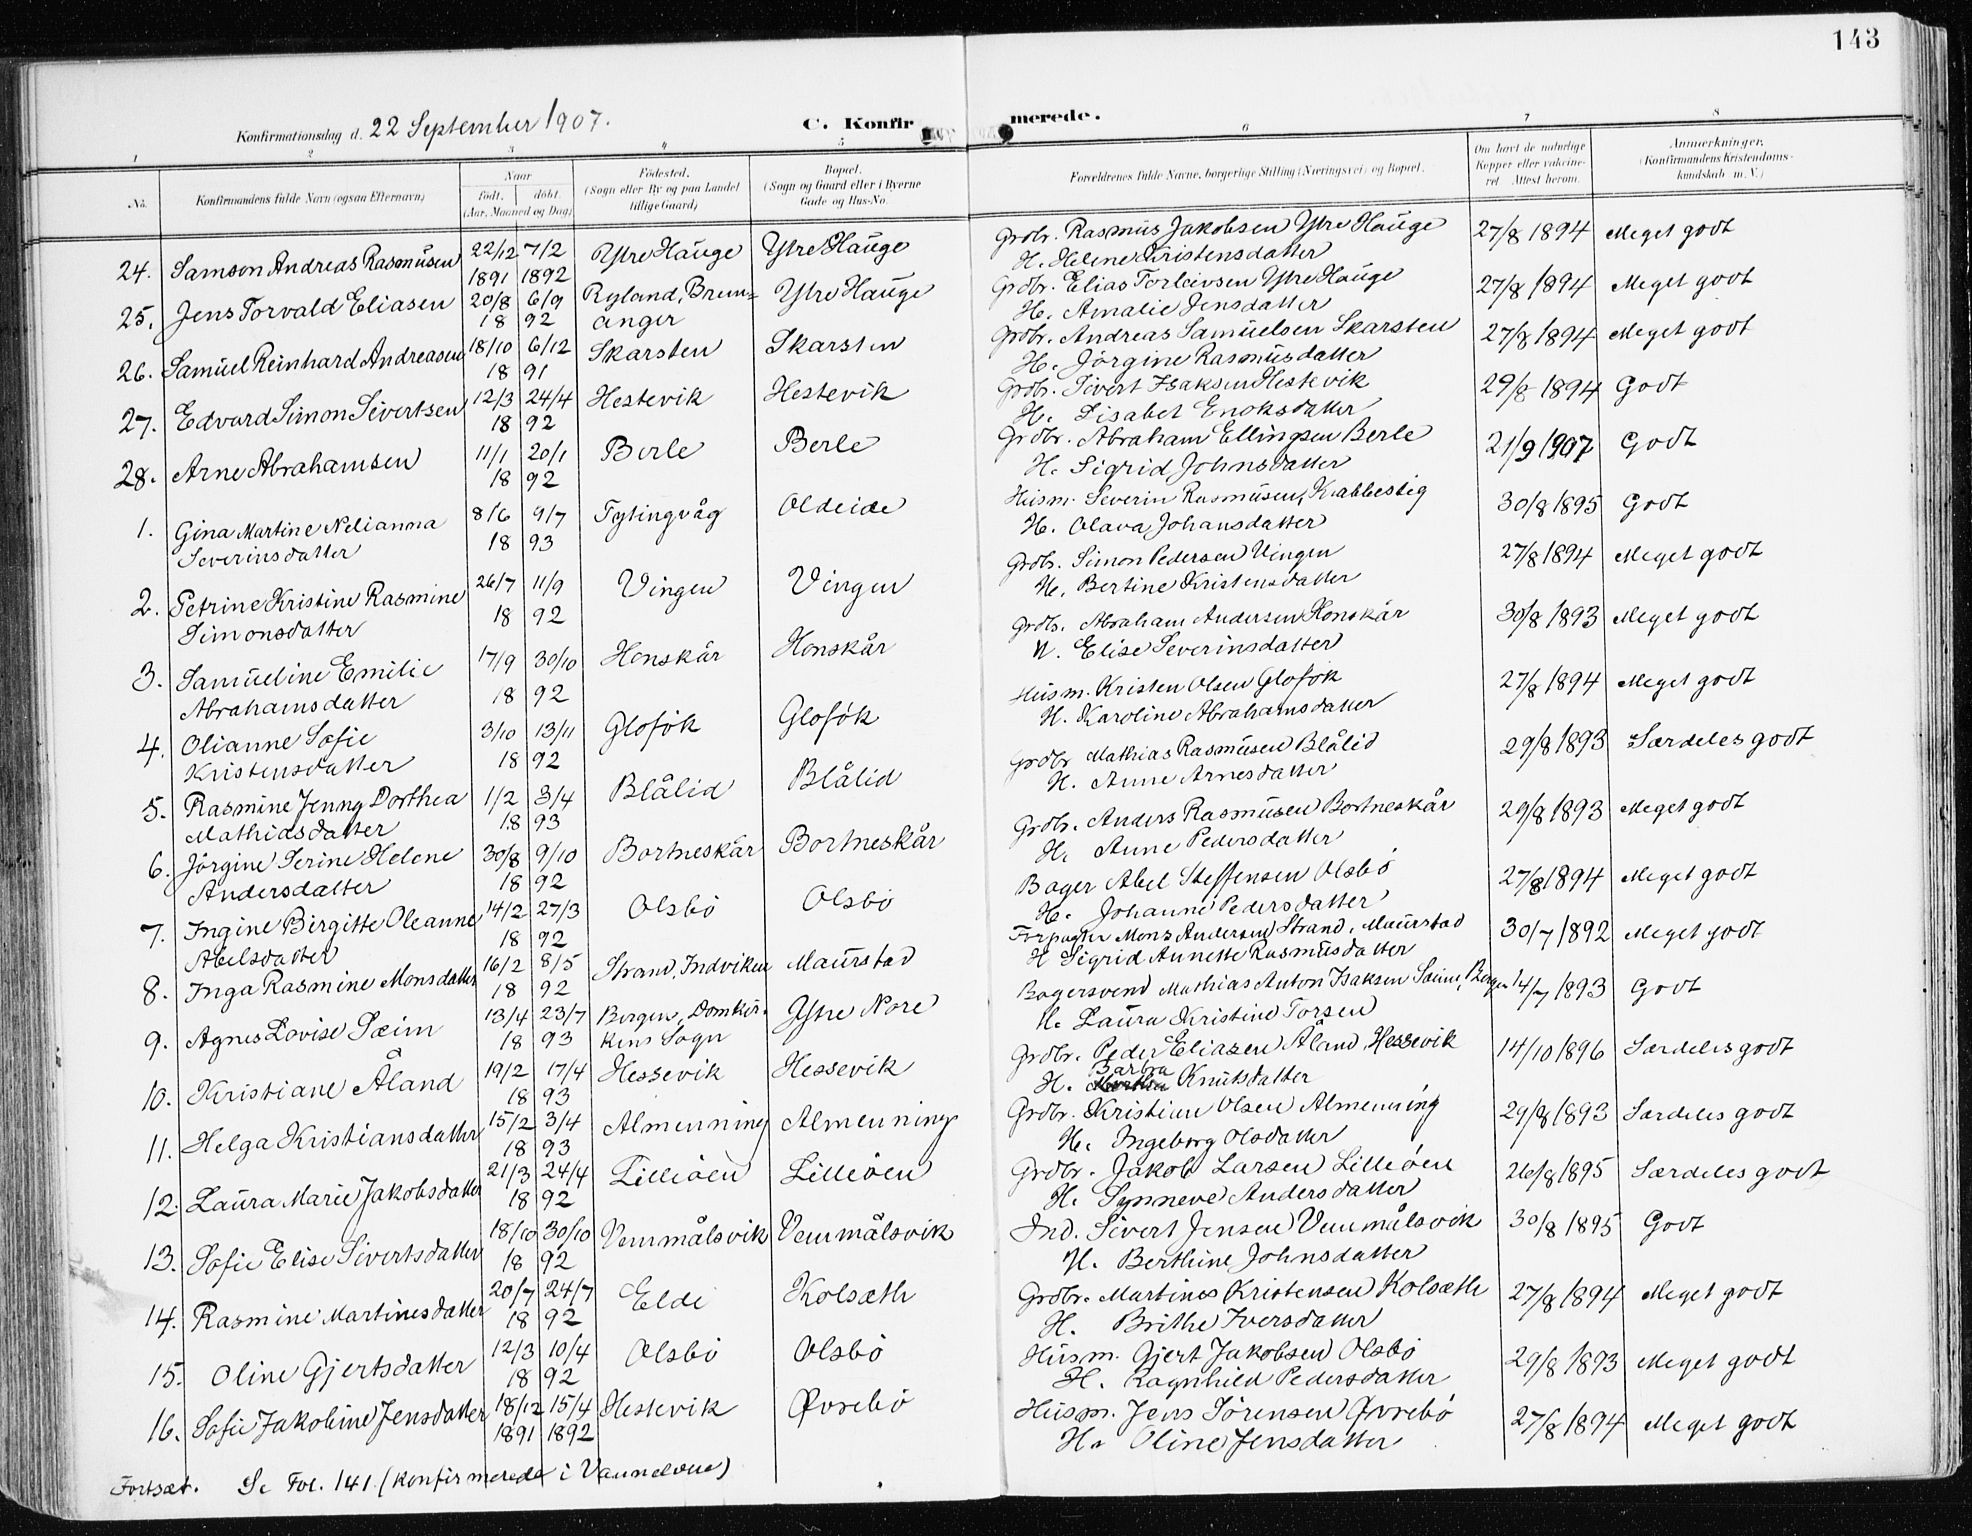 143
Konfirmationsdag d. 22 September 1907. C. Konfirmerede.
1 2 3 4 5 6 7 8
No. Konfirmandens fulde Navn (ogsaa Efternavn) Naar født. døbt. (Aar, Maaned og Dag) Fødested. (Sogn eller By og paa Landet tillige Gaard) Bopæl. (Sogn og Gaard eller i Byerne Gade og Hus-No. Forældrenes fulde Navne, borgerlige Stilling (Næringsvei) og Bopæl. Om havt de naturlige Kopper eller vakcineret. Attest herom. Anmærkninger. (Konfirmandens Kristendomskundskab m. V.)
24. Samson Andreas Rasmusen 22/12 7/2 Ytre Hauge Ytre Hauge Grdbr. Rasmus Jakobsen Ytre Hauge 27/8 1894 Meget godt
1891 1892 H. Helene Kristensdatter
25. Jens Torvald Eliasen 20/8 6/9 Ryland, Brem= Ytre Hauge Grdbr. Elias Torleivsen Ytre Hauge 27/8 1894 Meget godt
18 92 anger H. Amalie Jensdatter
26. Samuel Reinhard Andreasen 18/10 6/12 Skarsten Skarsten Grdbr. Andreas Samuelsen Skarsten 27/8 1894 Meget godt
18 91 H. Jörgine Rasmusdatter
27. Edvard Simon Sivertsen 12/3 24/4 Hestevik Hestevik Grdbr. Sivert Isaksen Hestevik 29/8 1894 Godt
18 92 H. Lisabet Enoksdatter
28. Arne Abrahamsen 11/1 20/1 Berle Berle Grdbr. Abraham Ellingsen Berle 21/9 1907 Godt
18 92 H. Sigrid Johnsdatter
1. Gina Martine Nelianna 8/6 9/7 Tytingvåg Oldeide Husm. Severin Rasmusen, Kabbestig 30/8 1895 Godt
Severinsdatter 18 93 H. Olava Johansdatter
2. Petrine Kristine Rasmine 26/7 11/9 Vingen Vingen Grdbr. Simon Pedersen Vingen 27/8 1894 Meget godt
Simonsdatter 18 92 H. Bertine Kristensdatter
3. Samueline Emilie 17/9 30/10 Honskår Honskår Grdb. Abraham Andersen Honskår 30/8 1893 Meget godt
Abrahamsdatter 18 92 H. Elise Severinsdatter
4. Olianne Sofie 3/10 13/11 Glofök Glofök Husm. Kristen Olsen Glofök 27/8 1894 Meget godt
Kristensdatter 18 92 H. Karoline Abrahamsdatter
5. Rasmine Jenny Dorthea 1/2 3/4 Blålid Blålid Grdbr. Mathias Rasmusen Blålid 29/8 1893 Særdeles godt
Mathiasdatter 18 93 H. Anne Arnesdatter
6. Jörgine Serine Helene 30/8 9/10 Bortneskår Bortneskår Grdbr. Anders Rasmusen Bortneskår 29/8 1893 Meget godt
Andersdatter 18 92 H. Anne Pedersdatter
7. Ingine Birgitte Oleanne 14/2 27/3 Olsbö Olsbö Bager Abel Steffensen Olsbö 27/8 1894 Meget godt
Abelsdatter 18 92 H. Johanne Pedersdatter
8. Inga Rasmine Monsdatter 16/2 8/5 Strand, Indviken Maurstad Forpagter Mons Andersen Strand, Maurstad 30/7 1892 Meget godt
18 92 H Sigrid Annette Rasmusdatter
9. Agnes Lovise Sæim 13/4 23/7 Bergen, Domkir- Ytre Nore Bagersvend Mathias Anton Isaksen Sæim, Bergen 14/7 1893 Godt
18 93 kens Sogn H. Laura Kristine Torsen
10. Kristiane Åland 19/2 17/4 Hessevik Hessevik Grdbr. Peder Eliasen Åland, Hessevik 14/10 1896 Særdeles godt
18 93 H. Barbra Knutsdatter
11. Helga Kristiansdatter 15/2 3/4 Almenning Almenning Grdbr. Kristian Olsen Almenning 29/8 1893 Særdeles godt
18 93 H. Ingeborg Olsdatter
12. Laura Marie Jakobsdatter 21/3 24/4 Lilleöen Lilleöen Grdbr. Jakob Larsen Lilleöen 26/8 1895 Særdeles godt
18 92 H. Synneve Andersdatter
13. Sofie Elise Sivertsdatter 18/10 30/10 Vemmålsvik Vemmålsvik Ind. Sivert Jensen Vemmålsvik 30/8 1895 Godt
18 92 H. Berthine Johnsdatter
14. Rasmine Martinesdatter 20/7 24/7 Elde Kolsæth Grdbr. Martines Kristensen Kolsæth 27/8 1894 Meget godt
18 92 H. Brithe Iversdatter
15. Oline Gjertsdatter 12/3 10/4 Olsbö Olsbö Husm. Gjert Jakobsen Olsbö 29/8 1893 Meget godt
18 92 H. Ragnhild Pedersdatter
16. Sofie Jakobine Jensdatter 18/12 15/4 Hestevik Øvrebö Husm. Jens Sörensen Øvrebö 27/8 1894 Meget godt
1891 1892 H. Oline Jensdatter
Fortsæt. Se Fol. 141 (konfirmerede i Vannelven)